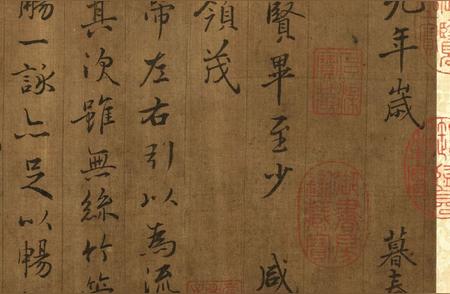 年歲 暮春
賢畢至少 咸
領茂
帶左右引以為流
其次雖無絲竹管
觴一詠亦足以暢